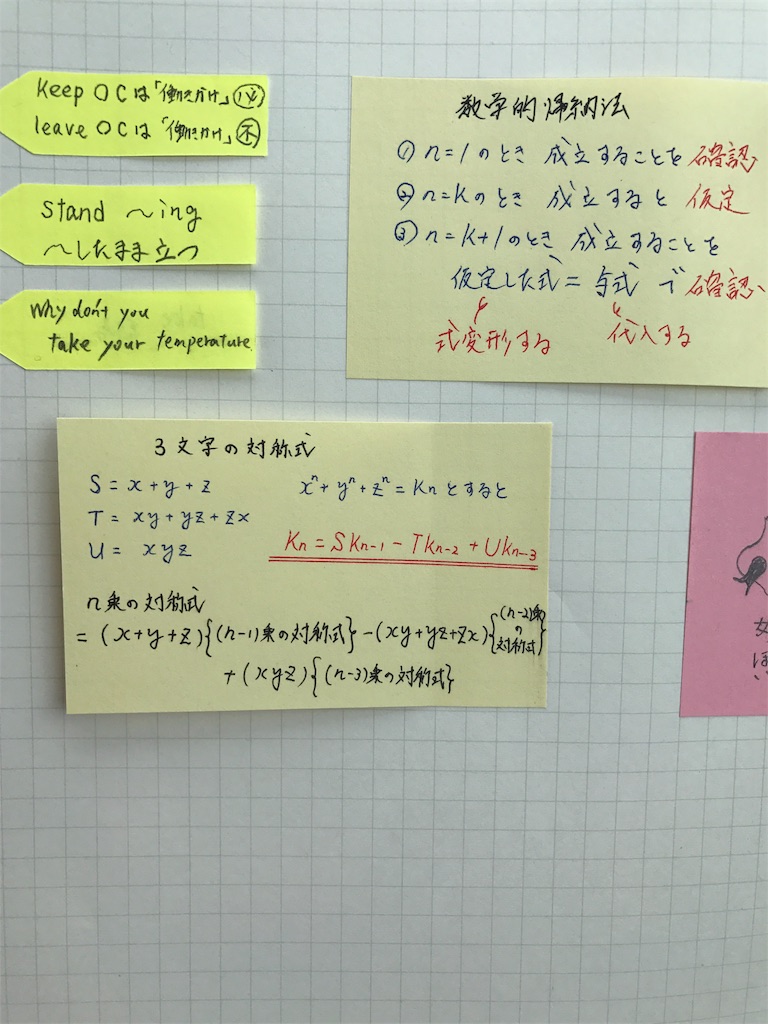 keep O C は「働きかけ」必
leave O C は「働きかけ」不
stand ～ing
～したまま立つ
Why don't you
take your temperature
数学的帰納法
① n=1のとき 成立することを確認
② n=kのとき 成立すると 仮定
③ n=k+1のとき 成立することを
仮定した式 = 与式 で 確認
式変形する 代入する
3文字の対称式
S = x+y+z
xⁿ+yⁿ+zⁿ=Kn とすると
T = xy+yz+zx
U = xyz
Kn = SKn-1 - TKn-2 + UKn-3
n乗の対称式
= (x+y+z){(n-1)乗の対称式} - (xy+yz+zx){(n-2)乗の対称式}
+ (xyz){(n-3)乗の対称式}